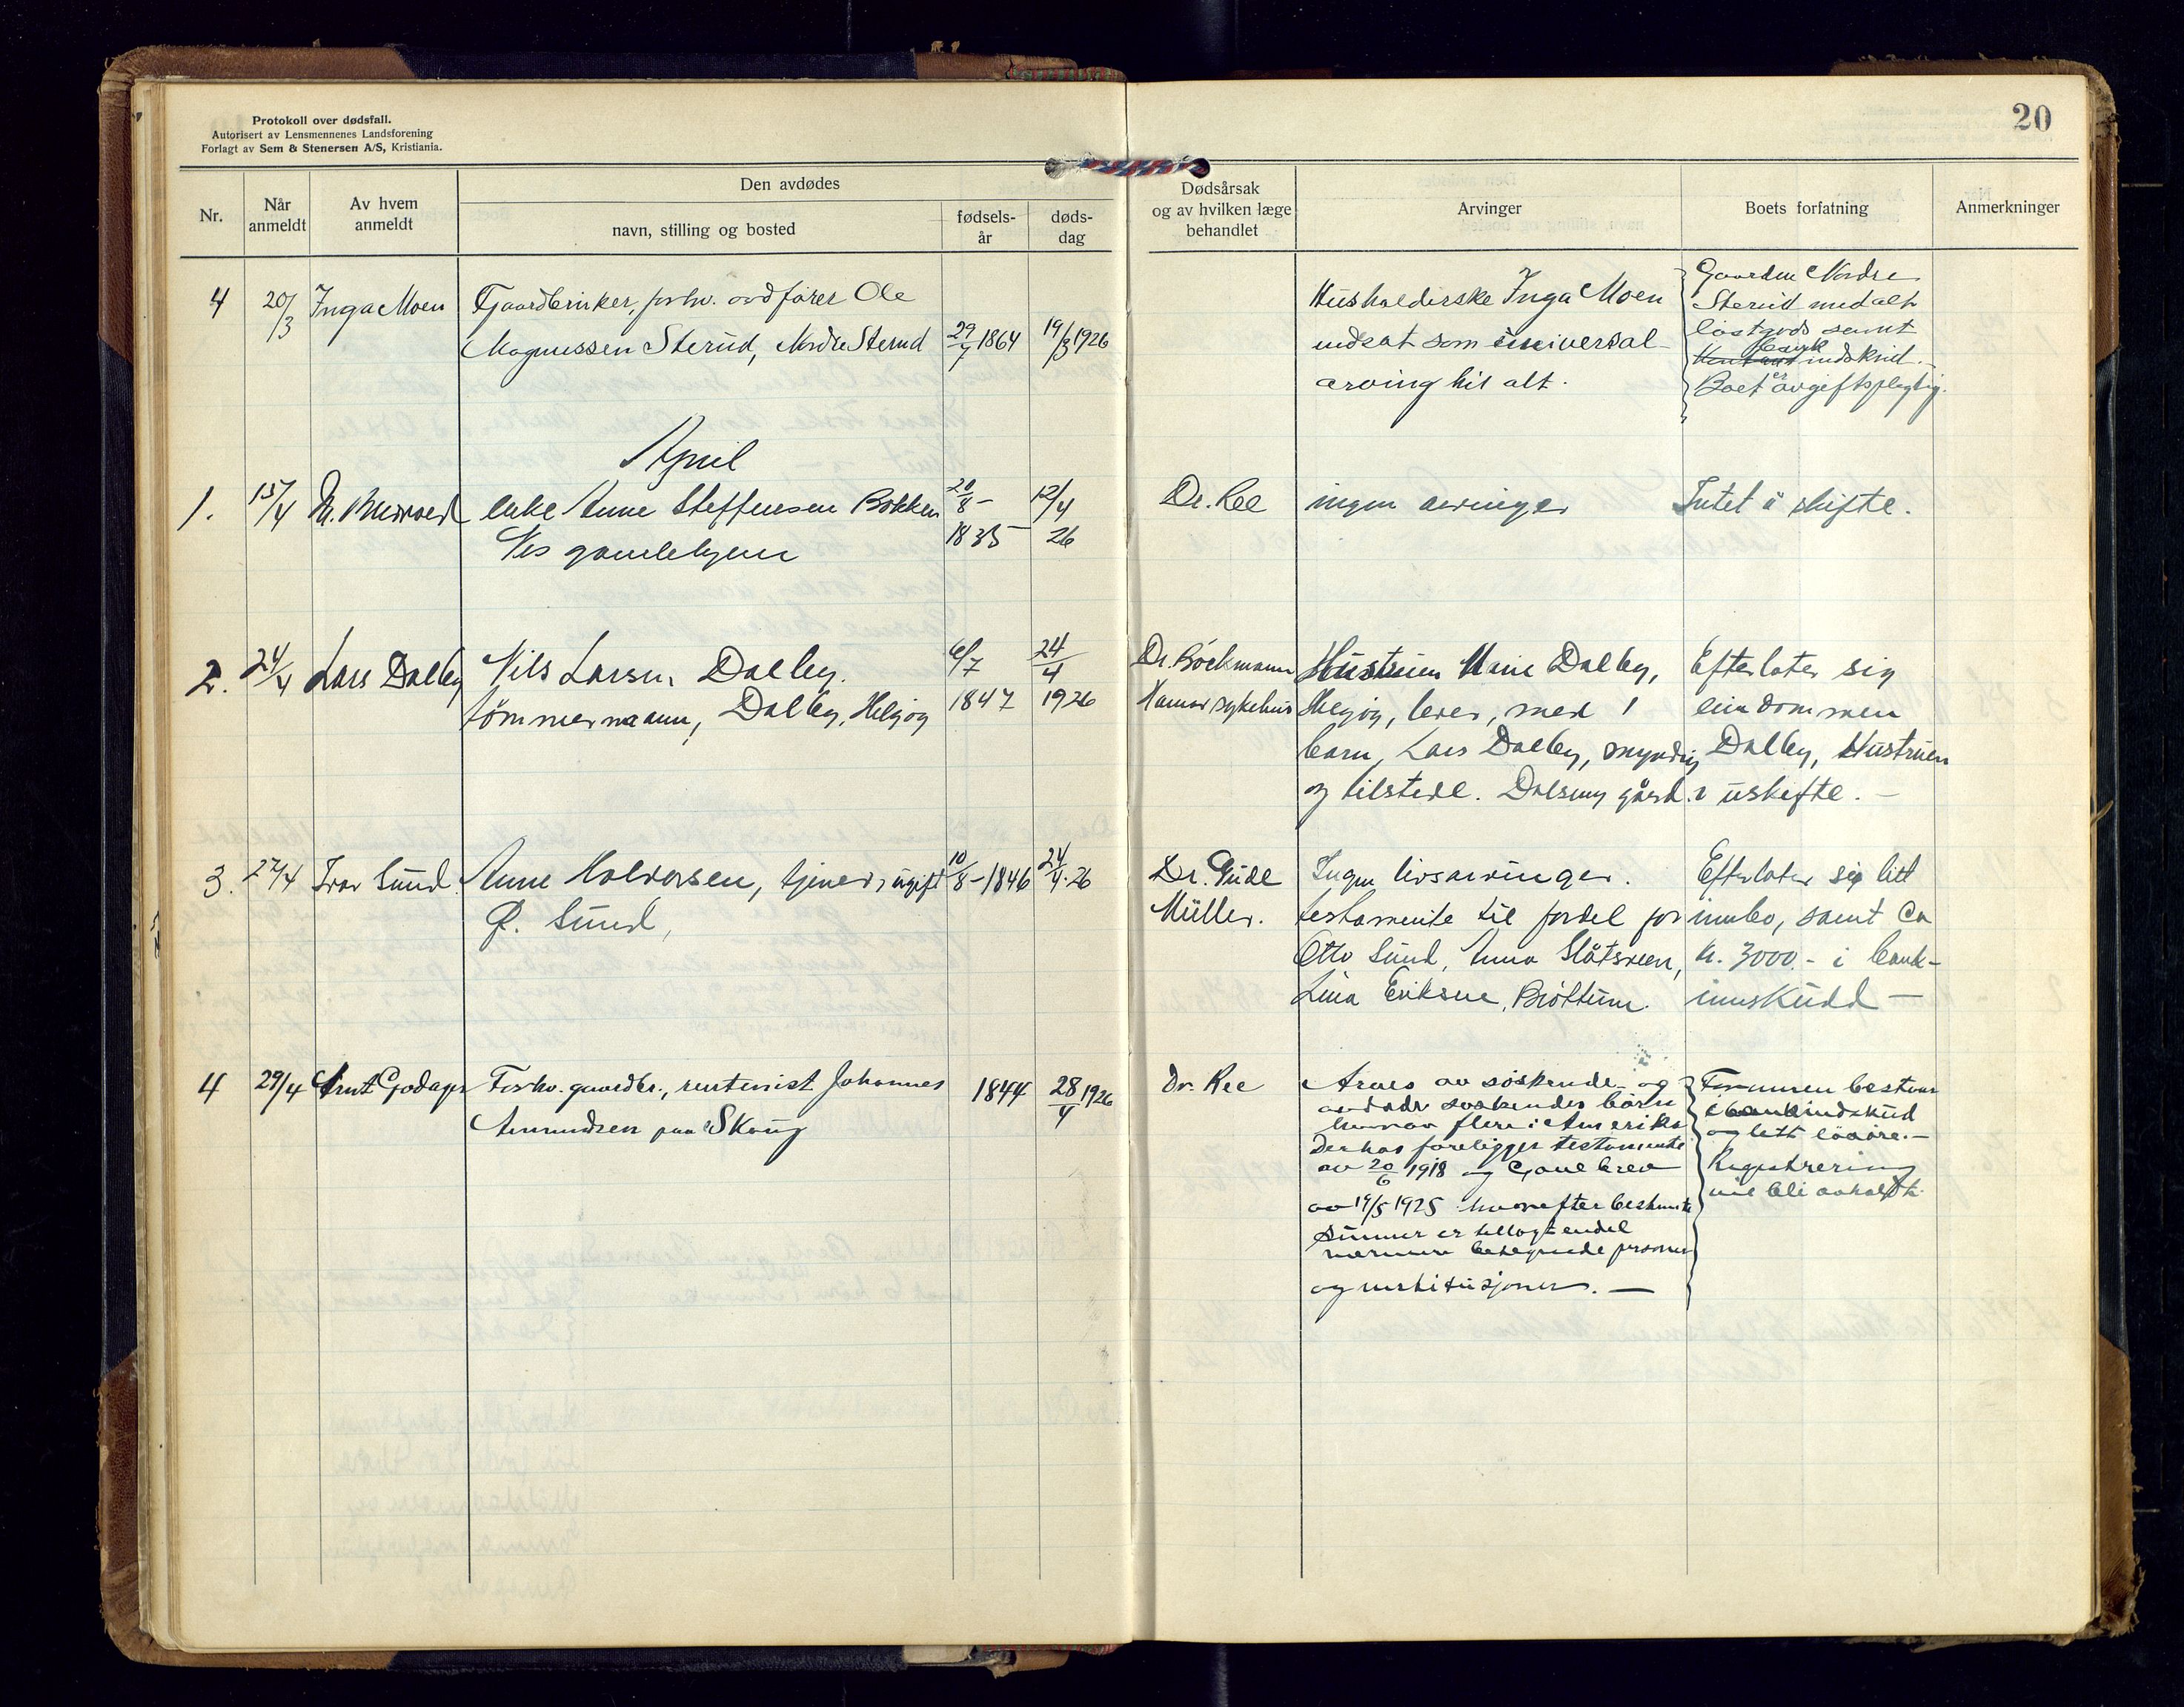 20
Protokoll over dødsfall.
Autorisert av Lensmennenes Landsforening
Forlagt av Sem & Stenersen A/S, Kristiania.
Nr.
Når anmeldt
Av hvem anmeldt
Den avdødes
navn, stilling og bosted
fødsels-år
døds-dag
Dødsårsak
og av hvilken læge
behandlet
Arvinger
Boets forfatning
Anmerkninger
4 20/3 Inga Moen Gaardbruker, forhv. ordfører Ole
Magnussen Sterud, Nordre Sterud 29/7 1864 19/3 1926
Husholderske Inga Moen
indsat som universal-
arving til alt.
Gaarden Nordre
Sterud med alt
løst gods samt
bank
indskud.
Boet er avgiftspligtig.
April
1. 15/4 enke Anne Steffensen Bakken 20/8 - 12/4
Nes gamlehjem 1835 26
Dr. Ree ingen arvinger Intet å skifte.
2. 24/4 Lars Dalby Nils Larsen Dalby. 6/7 24/4
tømmermann, Dalby, Helgøy 1847 1926
Dr. Böckmann
Hamar sykehus
Hustruen Marie Dalby,
Helgøy, lever, med 1
barn, Lars Dalby, myndig
og tilstede. gård.
Efterlater sig
eiendommen
Dalby, Hustruen
i uskifte. -
3. 27/4 Ivar Sund. Anne Halvorsen, tjener, ugift 10/8 - 1846 24/4-26
Ø. Sund,
Dr. Gude
Müller.
Ingen livsarvinger.
testamente til fordel for
Otto Sund, Anna Slåtsveen,
Lina Eriksen, Brøttum.
Efterlater sig litt
innbo, samt ca
kr. 3000.- i bank-
innskudd -
4 29/4 Arnt Godager Forhv. gaardbr., rentenist Johannes 1844 28/4 1926
Amundsen paa Skaug
Dr. Ree
Arves av søskende og
avdøde søskendes børn
hvorav flere i Amerika
Derhos foreligger testamente
av 20/6 1918 og Gavebrev
av 19/5 1925 hvorefter bestemte
summer er tillagt endel
nærmere betegnede personer
og institusjoner. -
Formuen bestaar
i bankindskud
og litt løsøre. -
Registrering
vil bli avholdt.